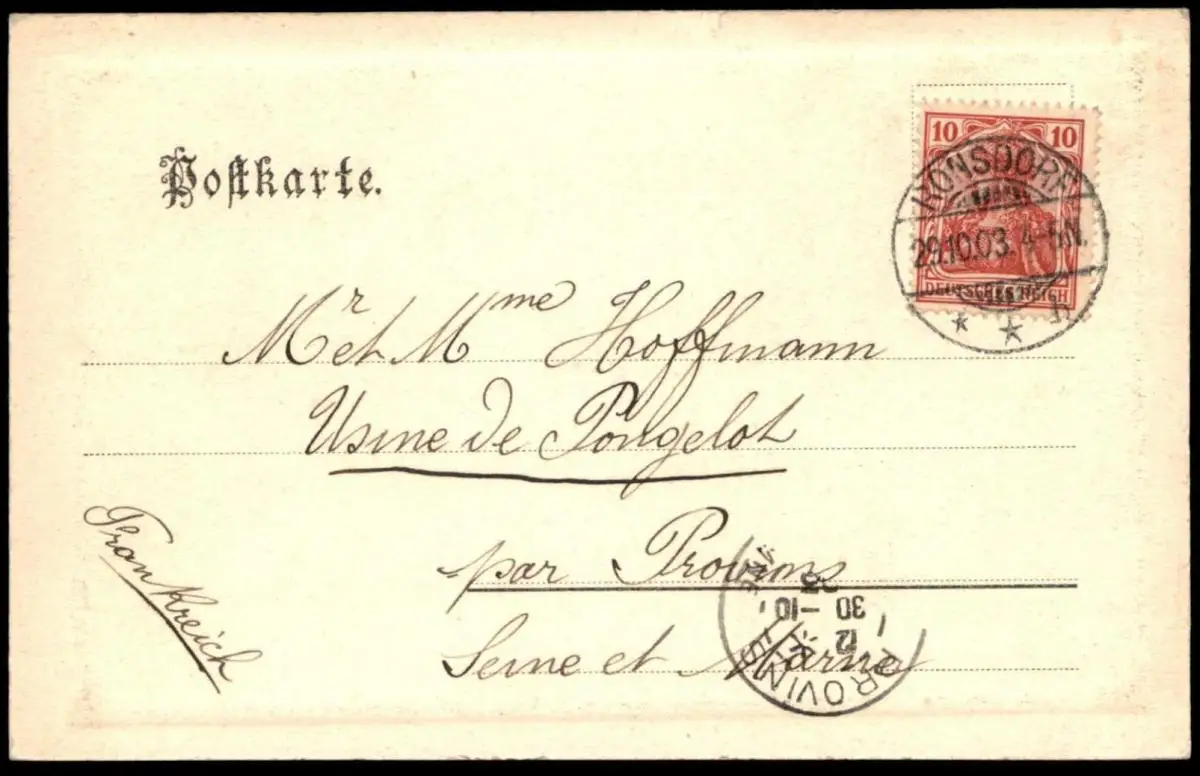 Postkarte.
10 10
DEUTSCHES REICH
RONSDORF
29.10.03. 4-5N.
Mr et Mme Hoffmann
Usine de Pongelot
par Provins
Seine et Marne
Frankreich
PROVINS
12
30 -10